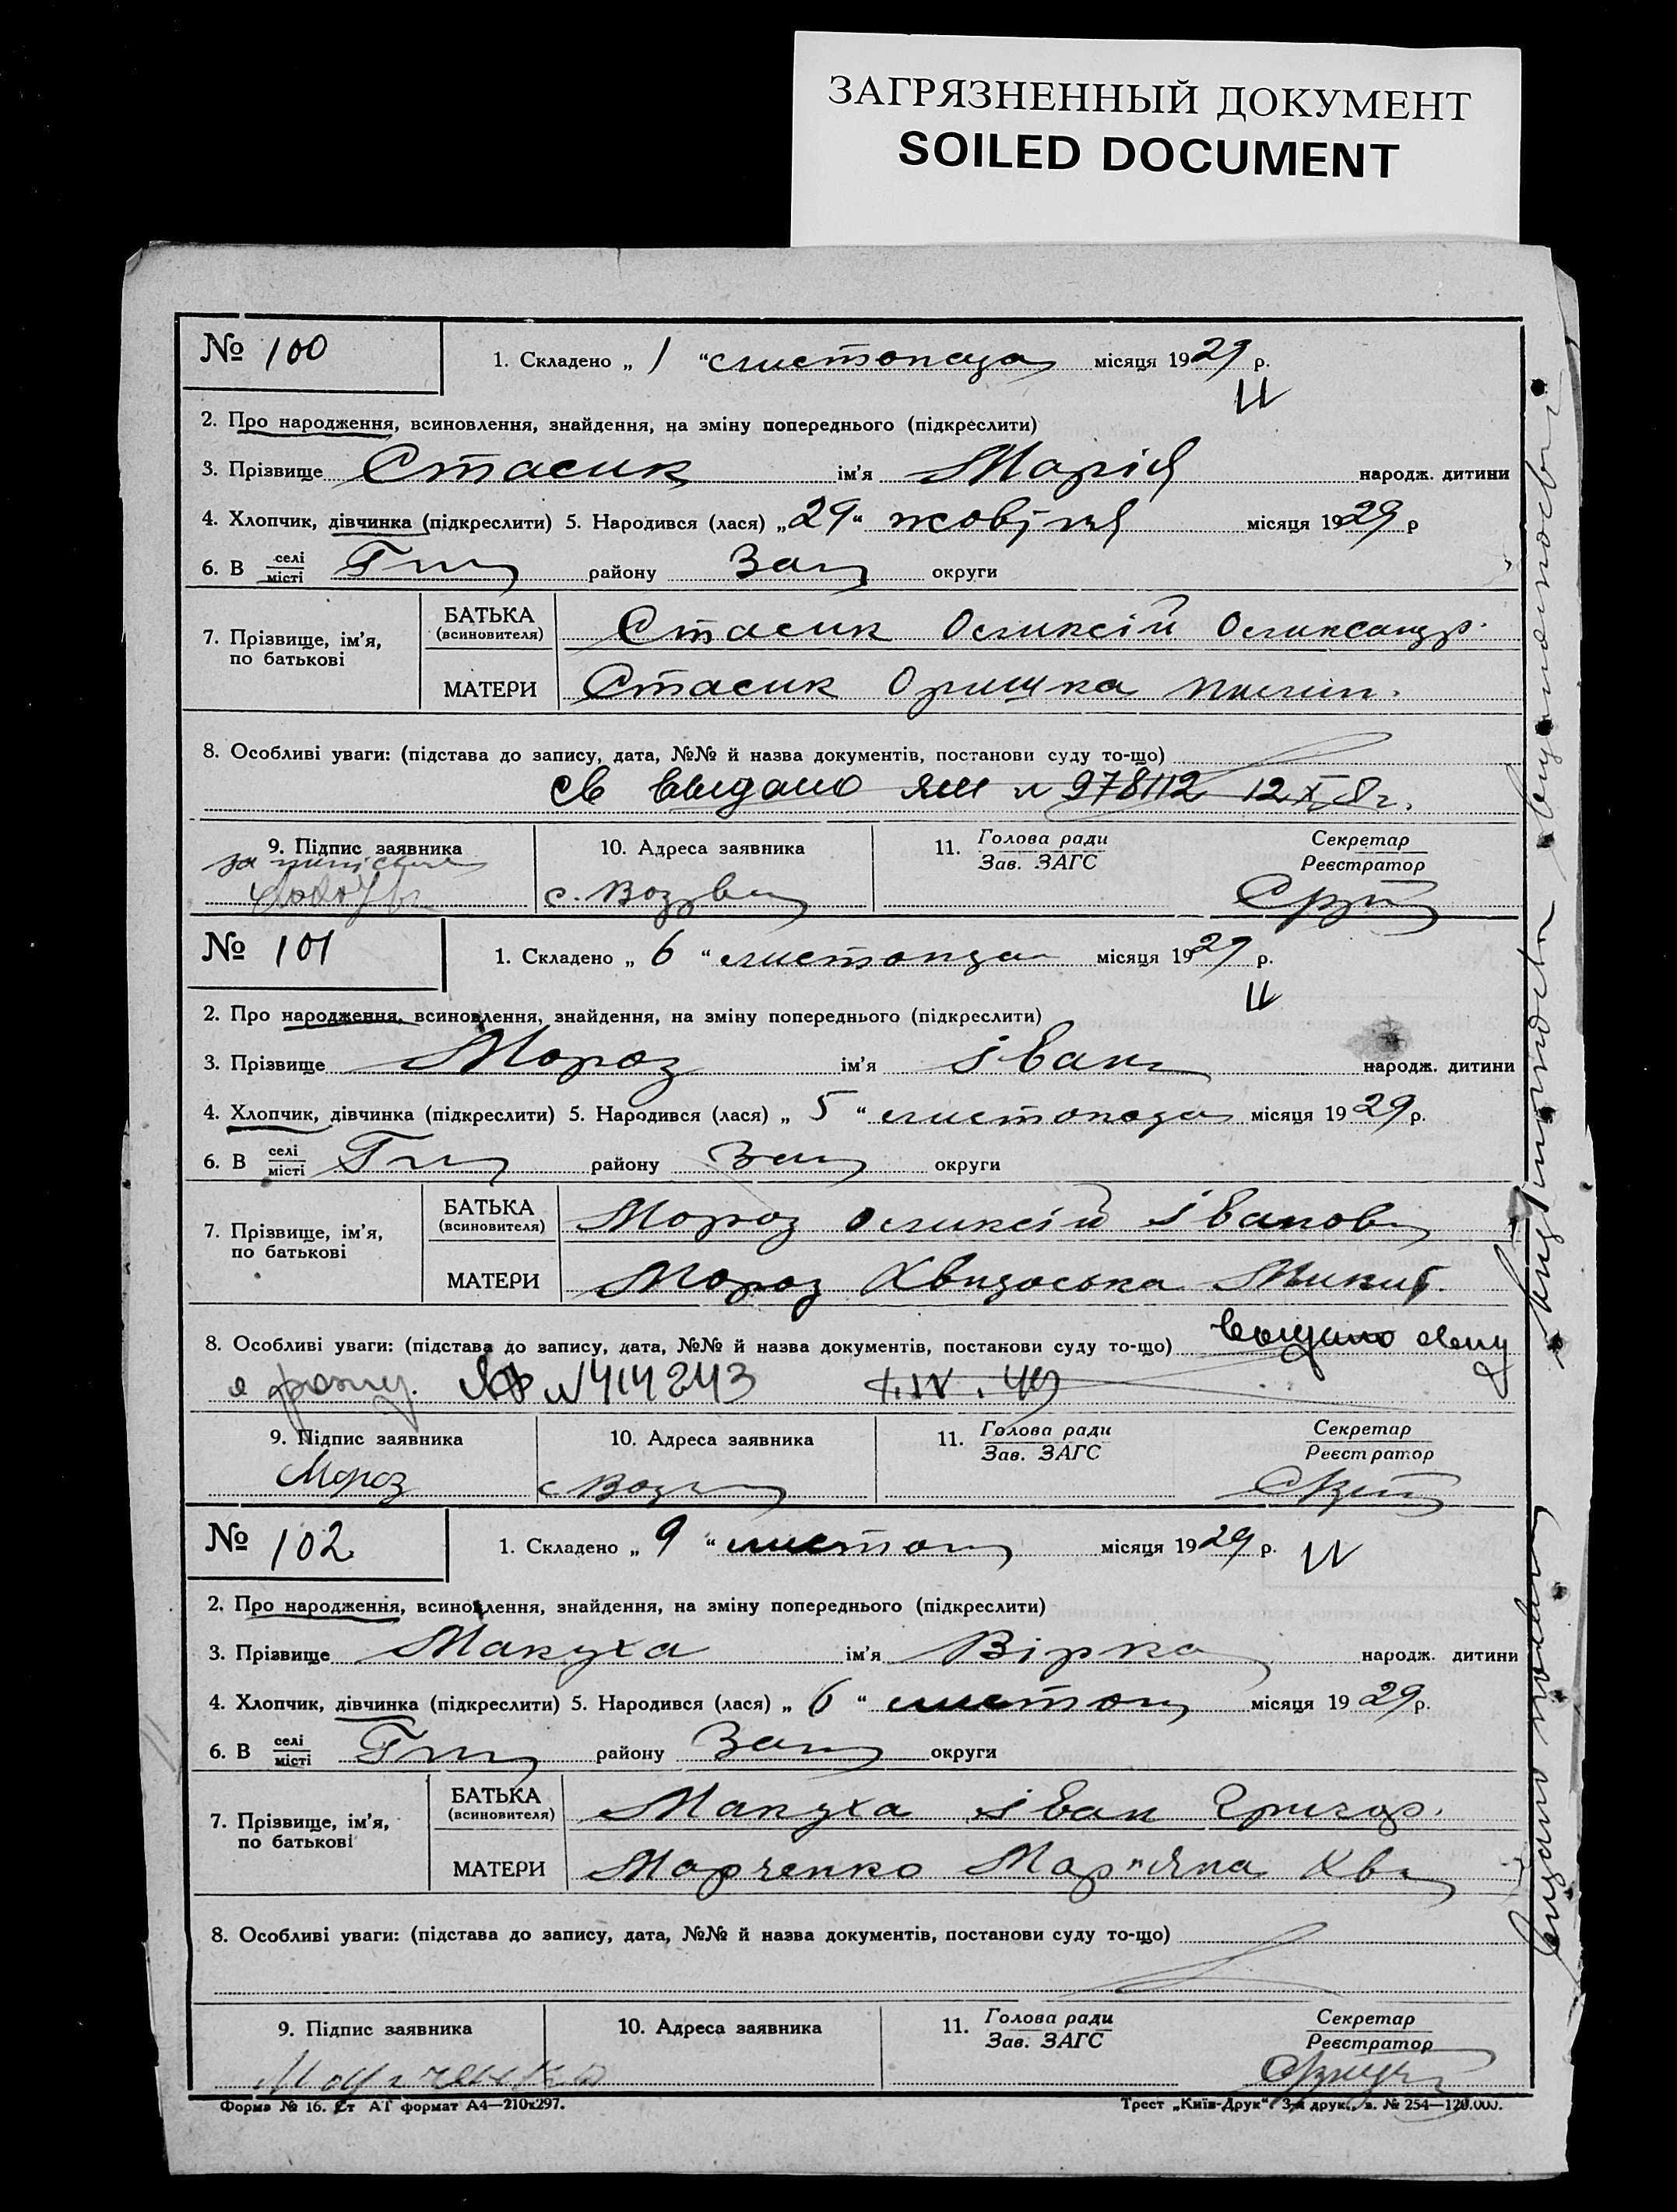 ЗАГРЯЗНЕННЫЙ ДОКУМЕНТ
SOILED DOCUMENT
№ 100
1. Складено „ 1 “ листопада місяця 1929 р.
2. Про народження, всиновлення, знайдення, на зміну попереднього (підкреслити)
3. Прізвище Стасик ім'я Марія народж. дитини
4. Хлопчик, дівчинка (підкреслити) 5. Народився (лася) „ 29 “ жовтня місяця 1929 р
6. В селі місті району округи
7. Прізвище, ім'я, по батькові
БАТЬКА (всиновителя) Стасик Оликсій Оликсандр.
МАТЕРИ Стасик Оришка
8. Особливі уваги: (підстава до запису, дата, №№ й назва документів, постанови суду то-що)
св выдано 978112 12 X
9. Підпис заявника
10. Адреса заявника
с.
11. Голова ради Зав. ЗАГС
Секретар Реєстратор
№ 101
1. Складено „ 6 “ листопада місяця 1929 р.
2. Про народження, всиновлення, знайдення, на зміну попереднього (підкреслити)
3. Прізвище Мороз ім'я Іван народж. дитини
4. Хлопчик, дівчинка (підкреслити) 5. Народився (лася) „ 5 “ листопада місяця 1929 р.
6. В селі місті району округи
7. Прізвище, ім'я, по батькові
БАТЬКА (всиновителя) Мороз Оликсій Іванов
МАТЕРИ Мороз Хвидоська Микит.
8. Особливі уваги: (підстава до запису, дата, №№ й назва документів, постанови суду то-що) выдано
о №414243
9. Підпис заявника
Мороз
10. Адреса заявника
с
11. Голова ради Зав. ЗАГС
Секретар Реєстратор
№ 102
1. Складено „ 9 “ листоп місяця 1929 р.
2. Про народження, всиновлення, знайдення, на зміну попереднього (підкреслити)
3. Прізвище Макуха ім'я Вірка народж. дитини
4. Хлопчик, дівчинка (підкреслити) 5. Народився (лася) „ 6 “ листоп місяця 1929 р.
6. В селі місті району округи
7. Прізвище, ім'я, по батькові
БАТЬКА (всиновителя) Макуха Іван Григор.
МАТЕРИ Марченко Мар"яна Хв
8. Особливі уваги: (підстава до запису, дата, №№ й назва документів, постанови суду то-що)
9. Підпис заявника
10. Адреса заявника
11. Голова ради Зав. ЗАГС
Секретар Реєстратор
Форма № 16. Ст АТ формат А4—210х297.
Трест „Київ-Друк“ 3-я друк., з. № 254—120.000.